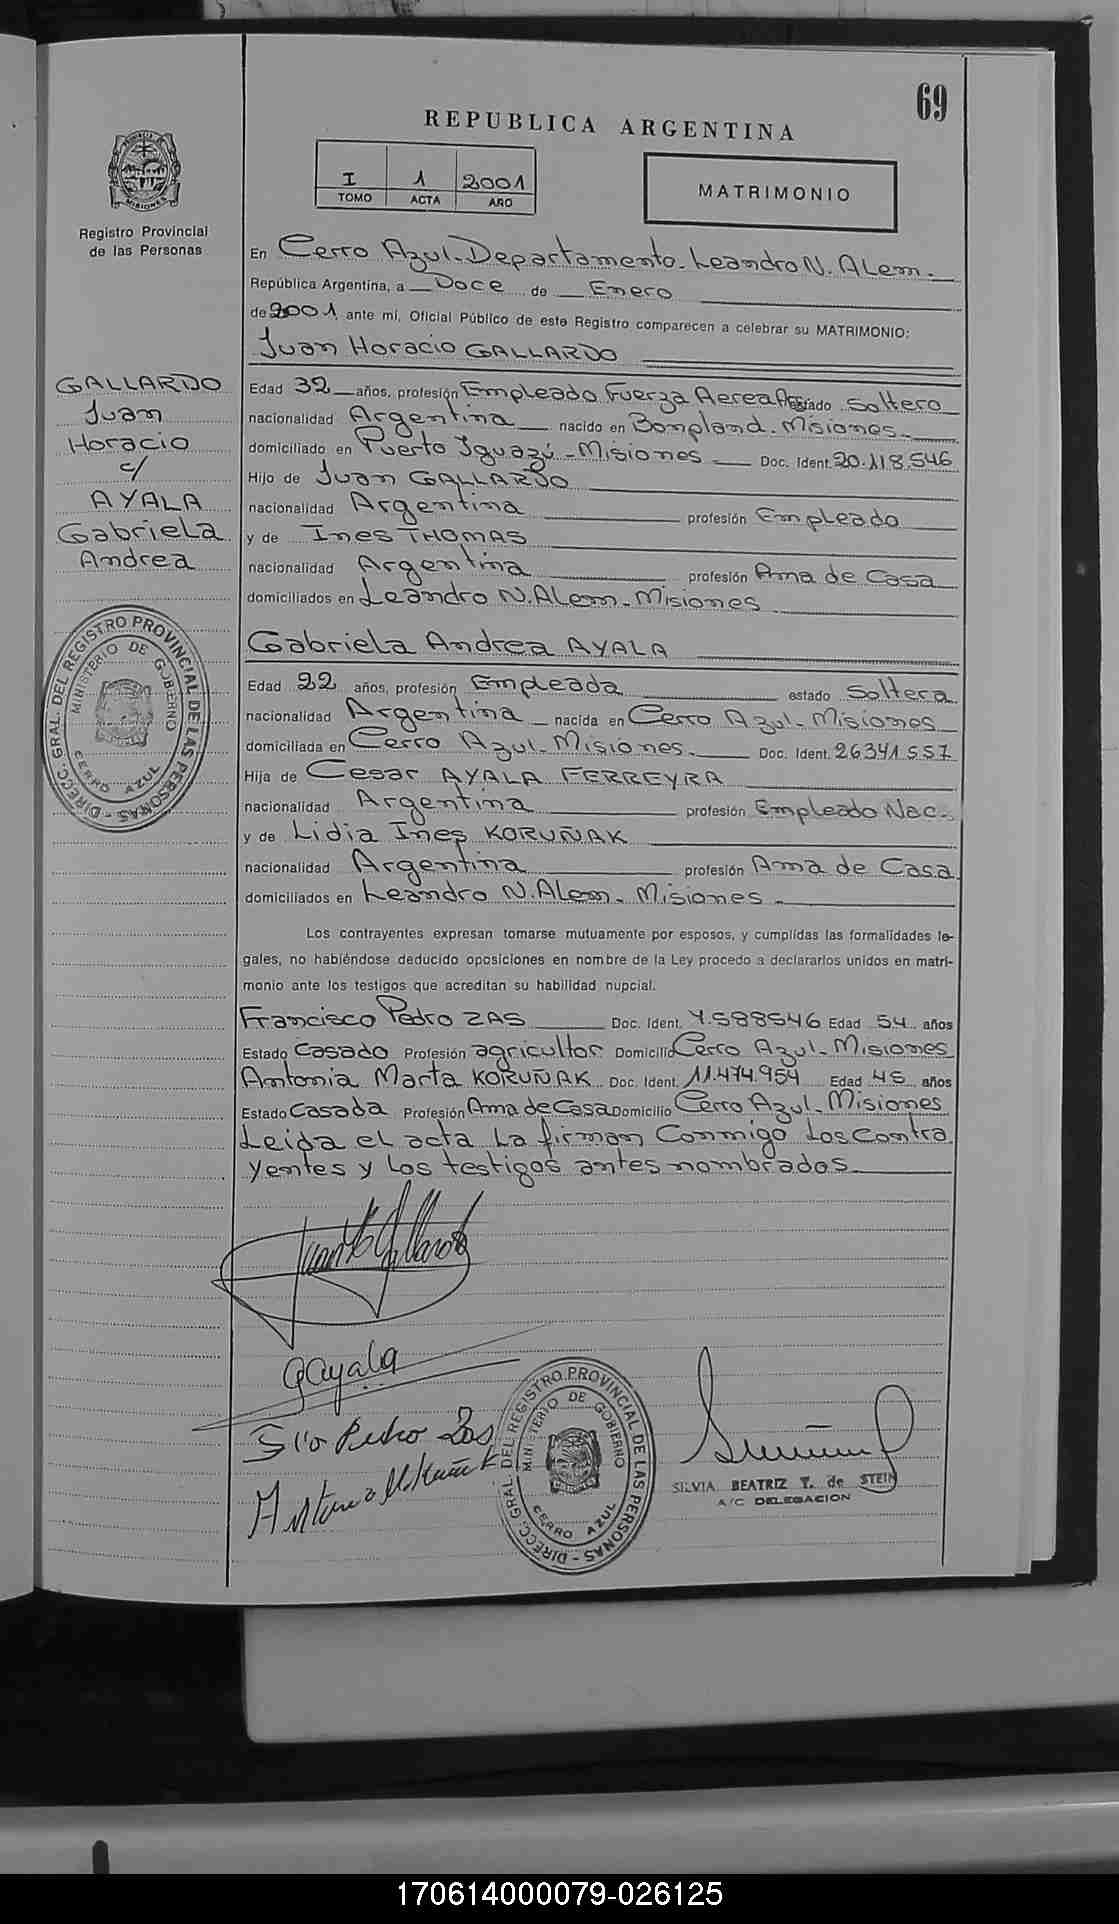 69
REPUBLICA ARGENTINA
I 1 2001
TOMO ACTA AÑO
MATRIMONIO
MISIONES
Registro Provincial
de las Personas
En Cerro Azul-Departamento-Leandro N. Alem-
República Argentina, a Doce de Enero
de 2001 ante mi, Oficial Público de este Registro comparecen a celebrar su MATRIMONIO:
Juan Horacio GALLARDO
GALLARDO
Juan
Horacio
c/
AYALA
Gabriela
Andrea
Edad 32 años, profesión Empleado Fuerza Aerea Arg estado Soltero
nacionalidad Argentina nacido en Bonpland-Misiones-
domiciliado en Puerto Iguazú-Misiones Doc. Ident. 20.118.546
Hijo de Juan GALLARDO
nacionalidad Argentina profesión Empleado
y de Ines THOMAS
nacionalidad Argentina profesión Ama de Casa
domiciliados en Leandro N. Alem-Misiones
Gabriela Andrea AYALA
Edad 22 años, profesión Empleada estado Soltera
nacionalidad Argentina nacida en Cerro Azul-Misiones
domiciliada en Cerro Azul-Misiones- Doc. Ident. 26341557
Hija de Cesar AYALA FERREYRA
nacionalidad Argentina profesión Empleado Nac.
y de Lidia Ines KORUÑAK
nacionalidad Argentina profesión Ama de Casa
domiciliados en Leandro N. Alem-Misiones-
DIRECC. GRAL. DEL REGISTRO PROVINCIAL DE LAS PERSONAS
MINISTERIO DE GOBIERNO
CERRO AZUL
Los contrayentes expresan tomarse mutuamente por esposos, y cumplidas las formalidades le-
gales, no habiéndose deducido oposiciones en nombre de la Ley procedo a declararlos unidos en matri-
monio ante los testigos que acreditan su habilidad nupcial.
Francisco Pedro ZAS Doc. Ident. 7.588546 Edad 54 años
Estado Casado Profesión agricultor Domicilio Cerro Azul-Misiones
Antonia Marta KORUÑAK Doc. Ident. 11.474.954 Edad 45 años
Estado Casada Profesión Ama de Casa Domicilio Cerro Azul-Misiones
Leida el acta la firman Conmigo los Contra
yentes y los testigos antes nombrados-
Juan H Gallardo
GAyala
Fco Pedro Zas
Antonia M. Koruñak
DIRECC. GRAL. DEL REGISTRO PROVINCIAL DE LAS PERSONAS
MINISTERIO DE GOBIERNO
CERRO AZUL
SILVIA BEATRIZ T. de STEIN
A/C DELEGACION
170614000079-026125